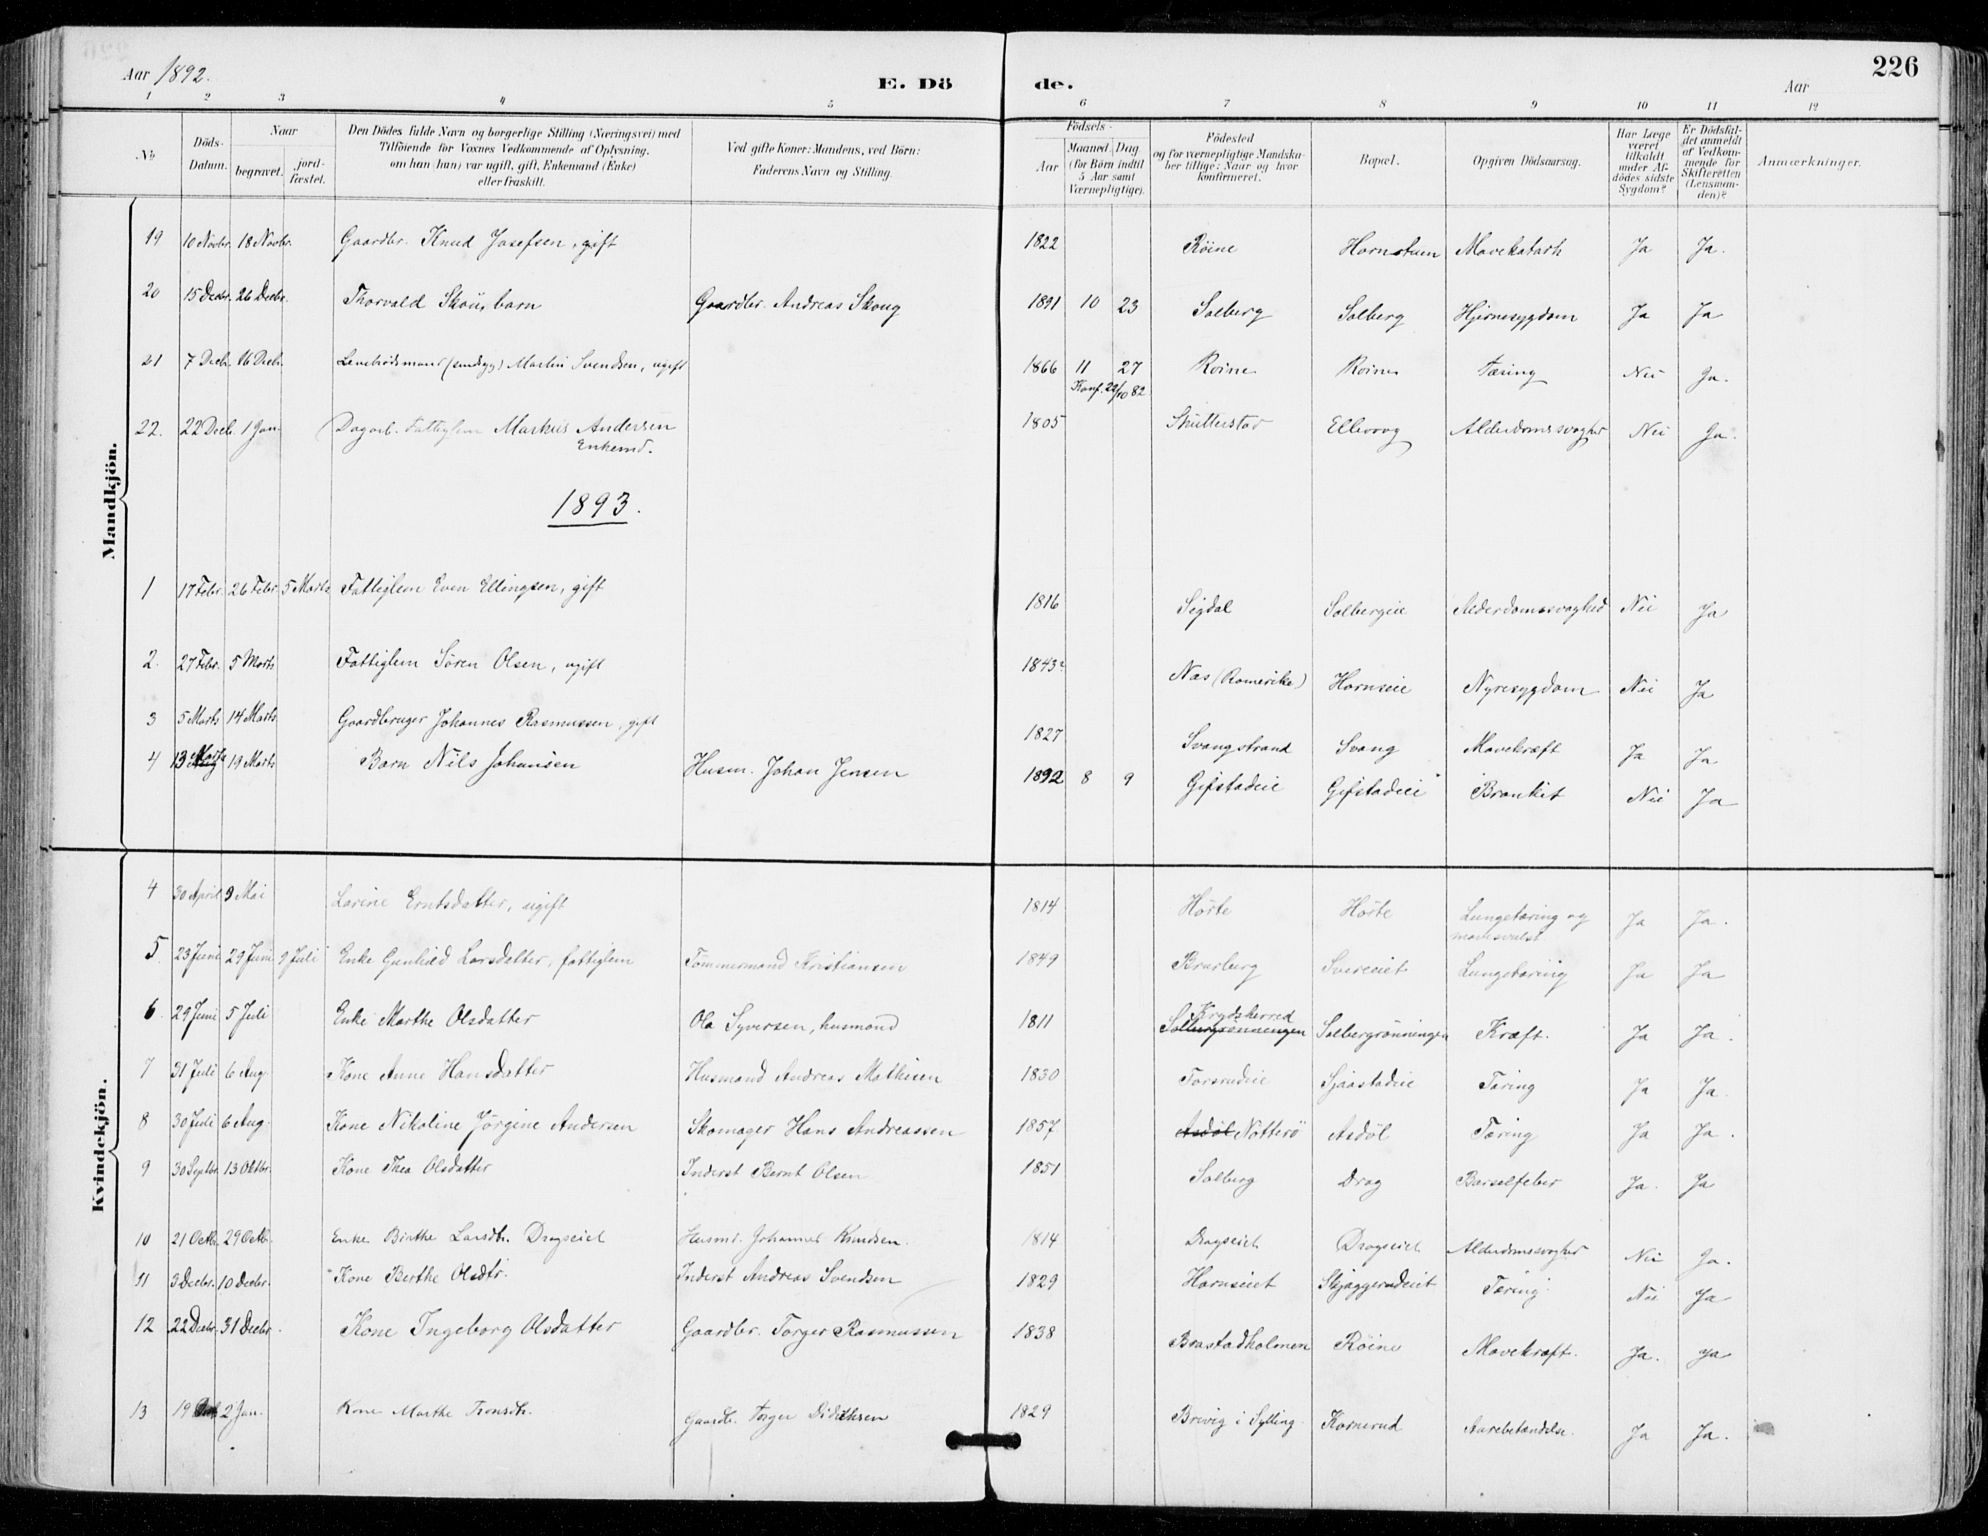 Aar 1892. E. Dö de. Aar 226
1 2 3 4 5 6 7 8 9 10 11 12
No Döds-Datum. Naar begravet. jord-fæstet. Den Dödes fulde Navn og borgerlige Stilling (Næringsvei) med Tilföiende for Voxnes Vedkommende af Oplysning, om han (hun) var ugift, gift, Enkemand (Enke) eller fraskilt. Ved gifte Koner: Mandens, ved Börn: Faderens Navn og Stilling. Födsels- Aar Maaned. Dag (for Börn indtil 5 Aar samt Værnepligtige). Födested og for værnepligtige Mandskaber tillige: Naar og hvor konfirmeret. Bopæl. Opgiven Dödsaarsag. Har Læge været tilkaldt under Afdödes sidste Sygdom? Er Dödsfaldet anmeldt af Vedkommende for Skifteretten (Lensmanden)? Anmærkninger.
Mandkjön.
19 10 Novbr. 18 Novbr. Gaardbr. Knud Josefsen, gift 1822 Röine Hornstuen Mavekatarh Ja Ja.
20 15 Decbr. 26 Decbr. Thorvald barn Gaardbr. Andreas Skoug 1891 10 23 Solberg Solberg Hjernesygdom Ja Ja
21 7 Decb. 16 Decb. (sindsyg) Martin Svendsen, ugift 1866 11 27 Roine Roine Tæring Nei Ja.
Konf. 29/10 82
22. 22 Decb. 1 Jan. Dagarb. Fattiglem Markus Andersen 1805 Skutterstad Ellevog Alderdomssvaghed Nei Ja.
Enkemd.
1893.
1 17 Febr. 26 Febr. 5 Marts Fattiglem Even Ellingsen, gift 1816 Sigdal Solbergeie Alderdomssvaghed Nei Ja
2. 27 Febr. 5 Marts Fattiglem Sören Olsen, ugift 1843? Nas (Romerike) Hornseie Nyresygdom Nei Ja
3 5 Marts 14 Marts Gaardbruger Johannes Rasmussen, gift 1827 Svangstrand Svang Mavekræft Ja Ja
4 13 Marts 19 Marts Barn Nils Johansen Husm. Johan Jensen 1892 8 9 Gifstadeie Gifstadeie Bronkit Nei Ja
Kvindekjön.
4 30 April 9 Mai Larine Erntsdatter, ugift 1814 Hörte Hörte Lungetæring og Ja Ja.
5 23 Juni 29 Juni 9 Juli Enke Gunhild Larsdatter, fattiglem Tömmermand Kristiansen 1849 Brurberg Svereeiet Lungetæring Ja Ja
6. 29 Juni 5 Juli Enke Marthe Olsdatter Ola Syversen, husmand 1811 Krydsherred Solbergrönningen Solbergrönningen Kræft. Ja Ja.
7 31 Juli 6 Aug. Kone Anne Hansdatter Husmand Andreas Mathisen 1830 Torsrudeie Sjaastadeie Tæring Ja Ja.
8 30 Juli 6 Aug. Kone Nikoline Jörgine Andersen Skomager Hans Andreassen 1857 Asdöl Nötterö Asdöl Tæring Ja Ja.
9 30 Septbr. 13 Oktbr. Kone Thea Olsdatter Inderst Bernt Olsen 1851 Solberg Drog Barselfeber Ja. Ja
10 21 Octb. 29 Octb. Enke Birthe Larsdtr. Dragseiet Husmd. Johannes Knudsen. 1814 Dragseiet Dragseiet Alderdomssvaghed Nei Ja.
11 3 Decbr. 10 Decbr. Kone Berthe Olsdtr. Inderst Andreas Svendsen 1829 Hornseiet Skjæggerudeiet Tæring. Nei Ja
12 22 Decbr. 31 Decbr. Kone Ingeborg Olsdatter Gaardbr. Torger Rasmussen 1838 Brastadholmen Röine Mavekræft. Ja. Ja
13 19 2 Jan. Kone Marthe Tronsdtr. Gaardb. Torger Didriksen 1829 Brevig i Sylling Kornerud Aarebetændelse. Ja Ja.